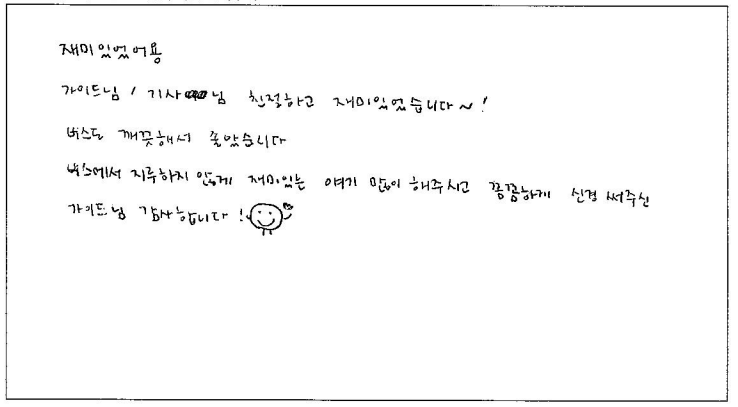 재미있었어용
가이드님 / 기사님 친절하고 재미있었습니다~!
버스도 깨끗해서 좋았습니다
버스에서 지루하지 않게 재미있는 얘기 많이 해주시고 꼼꼼하게 신경 써주신
가이드님 감사합니다!